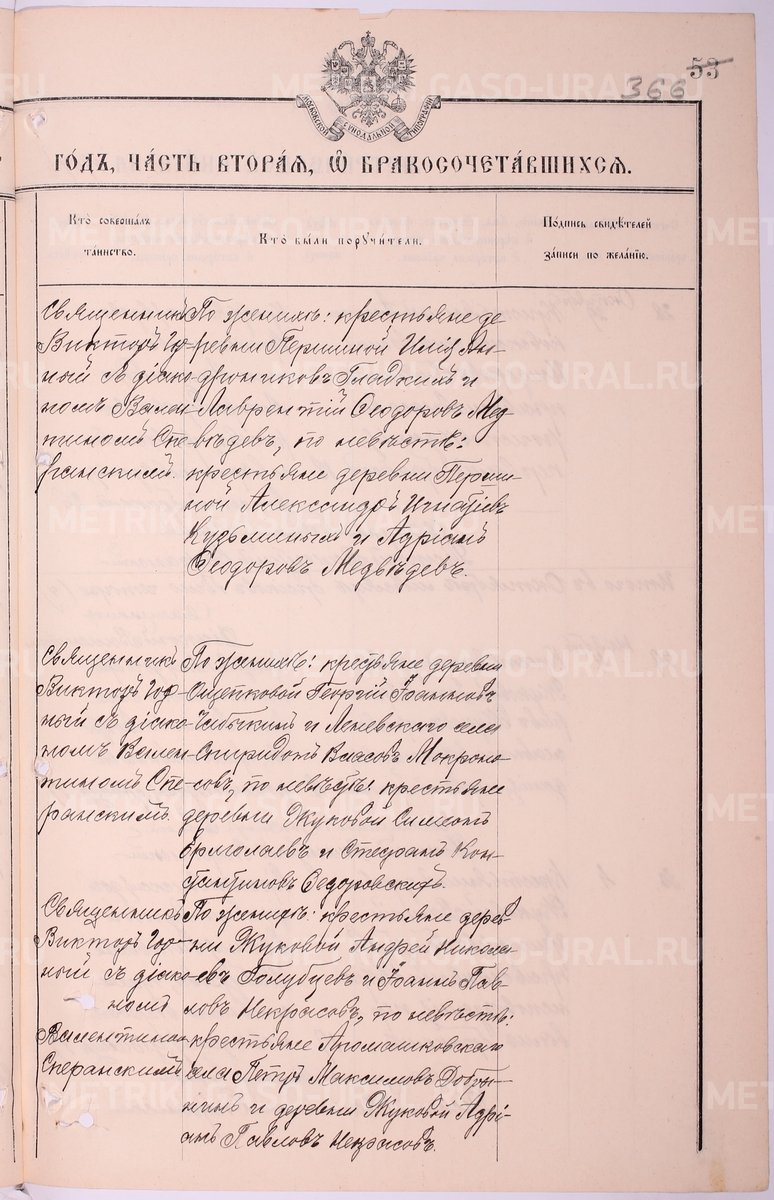 53
366
МОСКОВСКОЙ СѴНОДАЛЬНОЙ ТИПОГРАФІИ
ГО́ДЪ, ЧА́СТЬ ВТОРА́Я, Ѽ БРАКОСОЧЕТА́ВШИХСЯ.
Кто̀ соверша́лъ
та́инство.
Кто̀ бы́ли порꙋчи́тели.
По́дпись свидѣ́телей
за́писи по жела́нїю.
Священникъ
Викторъ Гор-
ный съ діако-
номъ Вален-
тиномъ Спе-
ранскимъ.
По женихѣ: крестьяне де
ревни Першиной Илія Ан-
дрониковъ Гладкихъ и
Лаврентій Ѳеодоровъ Мед-
вѣдевъ, по невѣстѣ:
крестьяне деревни Перши-
ной Александръ Игнатіевъ
Кузьминыхъ и Адріанъ
Ѳеодоровъ Медвѣдевъ.
Священникъ
Викторъ Гор-
ный съ діако-
номъ Вален-
тиномъ Спе-
ранскимъ.
По женихѣ: крестьяне деревни
Ощепковой Георгій Іоанновъ
и Леневскаго села
Спиридонъ Власовъ Мокроно-
совъ, по невѣстѣ: крестьяне
деревни Жуковой Симеонъ
Ермолаевъ и Стефанъ Кон-
стантиновъ Ѳедоровскихъ.
Священникъ
Викторъ Гор-
ный съ діако-
номъ
Валентиномъ
Сперанскимъ
По женихѣ: крестьяне дерев-
ни Жуковой Андрей Никола-
евъ Голубцевъ и Іоаннъ Пав-
ловъ Некрасовъ, по невѣстѣ:
крестьяне Арамашковскаго
села Петръ Максимовъ Добры-
нинъ и деревни Жуковой Адрі-
анъ Павловъ Некрасовъ.
METRIKI.GASO-URAL.RU